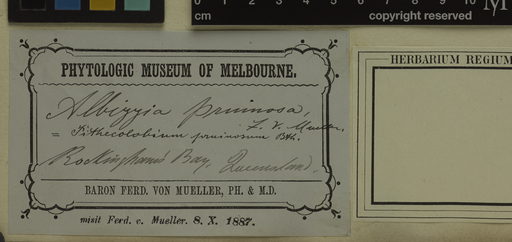 0 1 2 3 4 5 6 7 8 9 10
cm copyright reserved
PHYTOLOGIC MUSEUM OF MELBOURNE.
Albizzia pruinosa,
F. v. Mueller.
= Pithecolobium pruinosum Bth.
Rockingham's Bay, Queensland.
BARON FERD. VON MUELLER, PH. & M.D.
misit Ferd. v. Mueller. 8. X. 1887.
HERBARIUM REGIUM